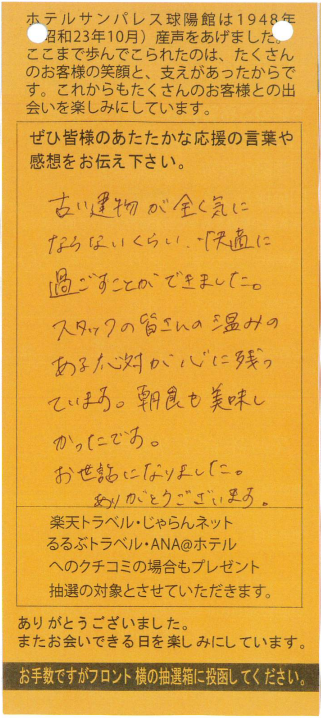 ホテルサンパレス球陽館は1948年
昭和23年10月）産声をあげました。
ここまで歩んでこられたのは、たくさん
のお客様の笑顔と、支えがあったからで
す。これからもたくさんのお客様との出
会いを楽しみにしています。
ぜひ皆様のあたたかな応援の言葉や
感想をお伝え下さい。
古い建物が全く気に
ならないくらい、快適に
過ごすことができました。
スタッフの皆さんの温みの
ある応対が心に残っ
ています。朝食も美味し
かったです。
お世話になりました。
ありがとうございます。
楽天トラベル・じゃらんネット
るるぶトラベル・ANA@ホテル
へのクチコミの場合もプレゼント
抽選の対象とさせていただきます。
ありがとうございました。
またお会いできる日を楽しみにしています。
お手数ですがフロント横の抽選箱に投函してください。